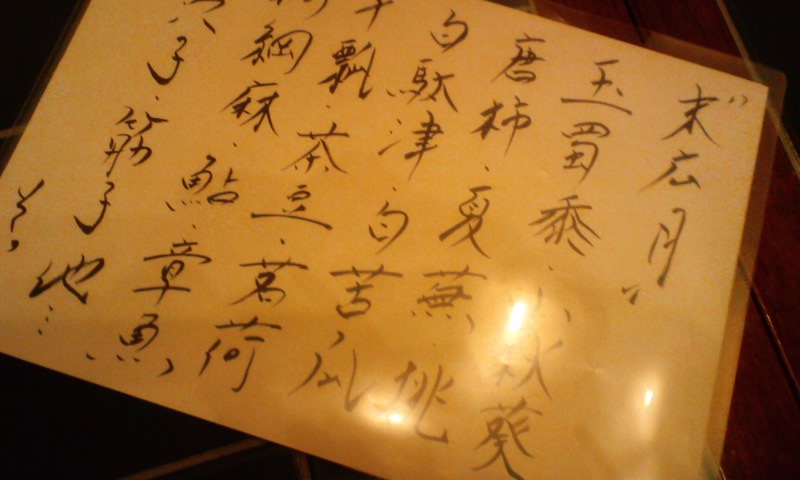 〝末広月〟
玉蜀黍・小秋葵
唐柿・夏蕪・桃
白駄津・白苦瓜
干瓢・茶豆・茗荷
綱麻・鮎・章魚
子・筋子他…